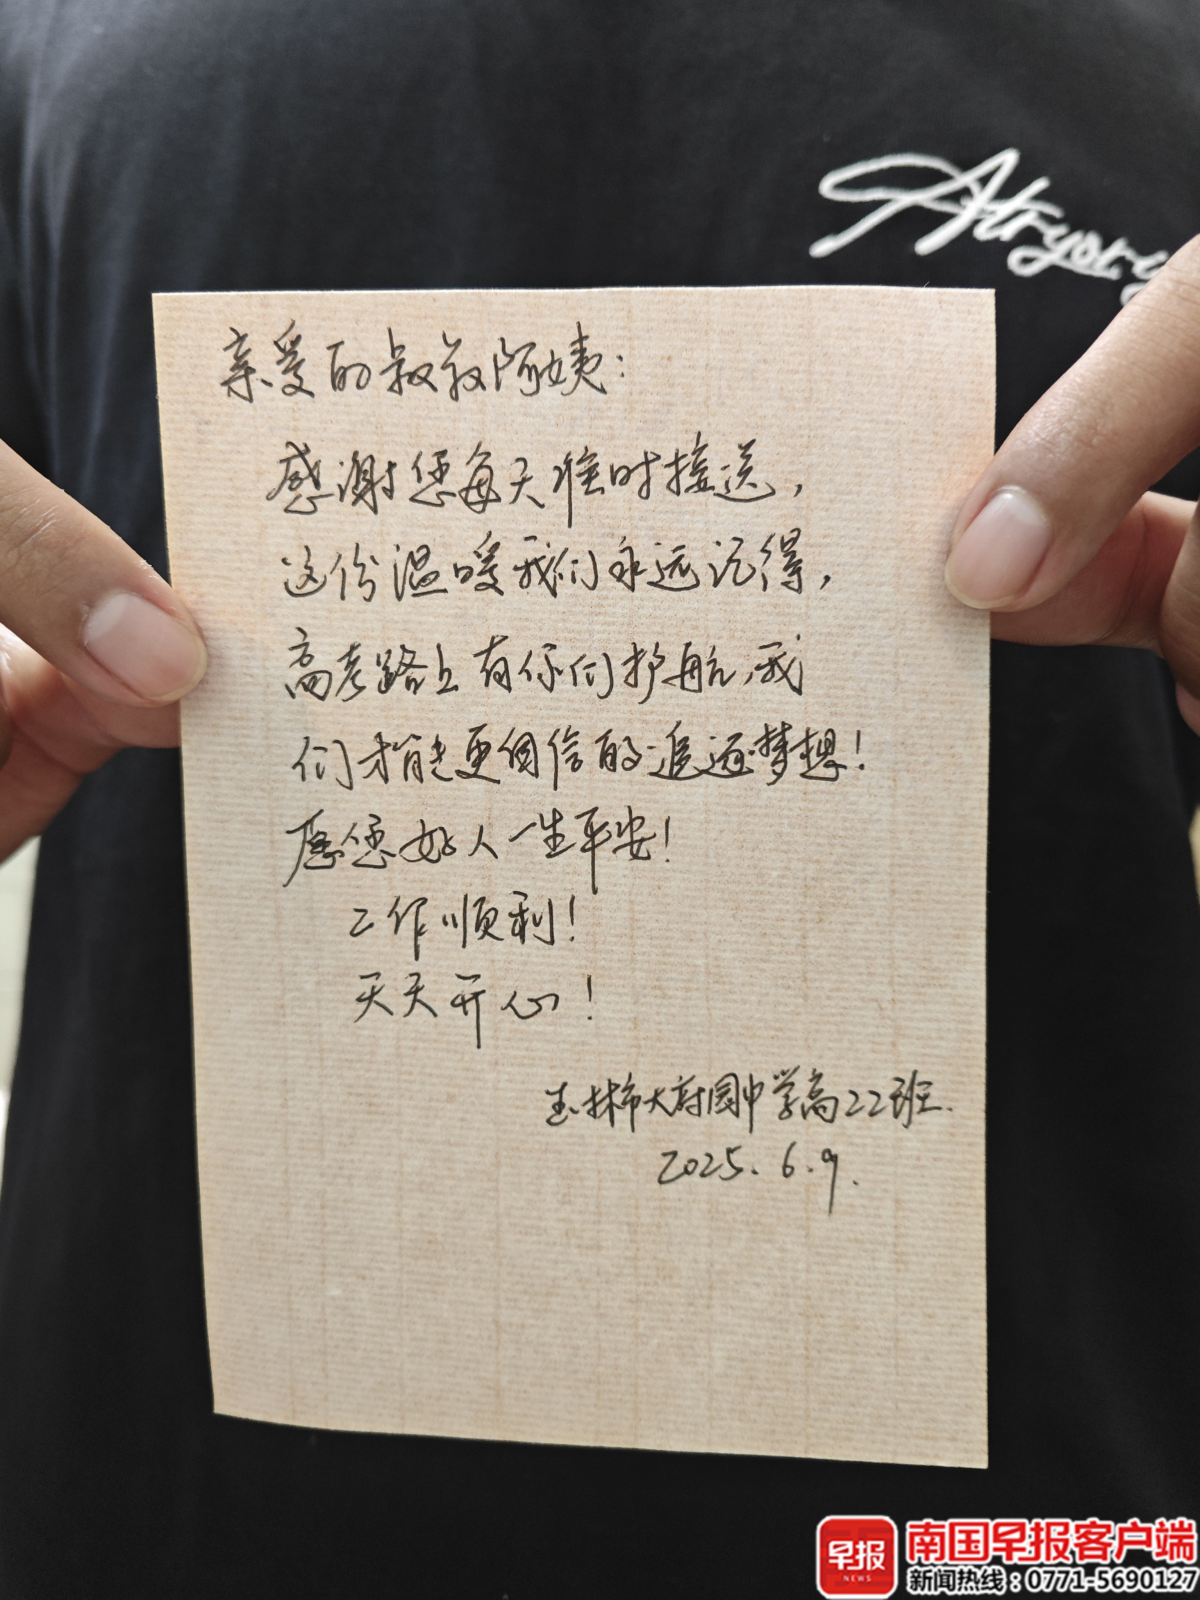 Atryory
亲爱的叔叔阿姨：
感谢您每天准时接送，
这份温暖我们永远记得，
高考路上有你们护航，我
们才能更自信的追逐梦想！
愿您好人一生平安！
工作顺利！
天天开心！
玉林市大府园中学高22班.
2025.6.9.
早报
NEWS
南国早报客户端
新闻热线：0771-5690127